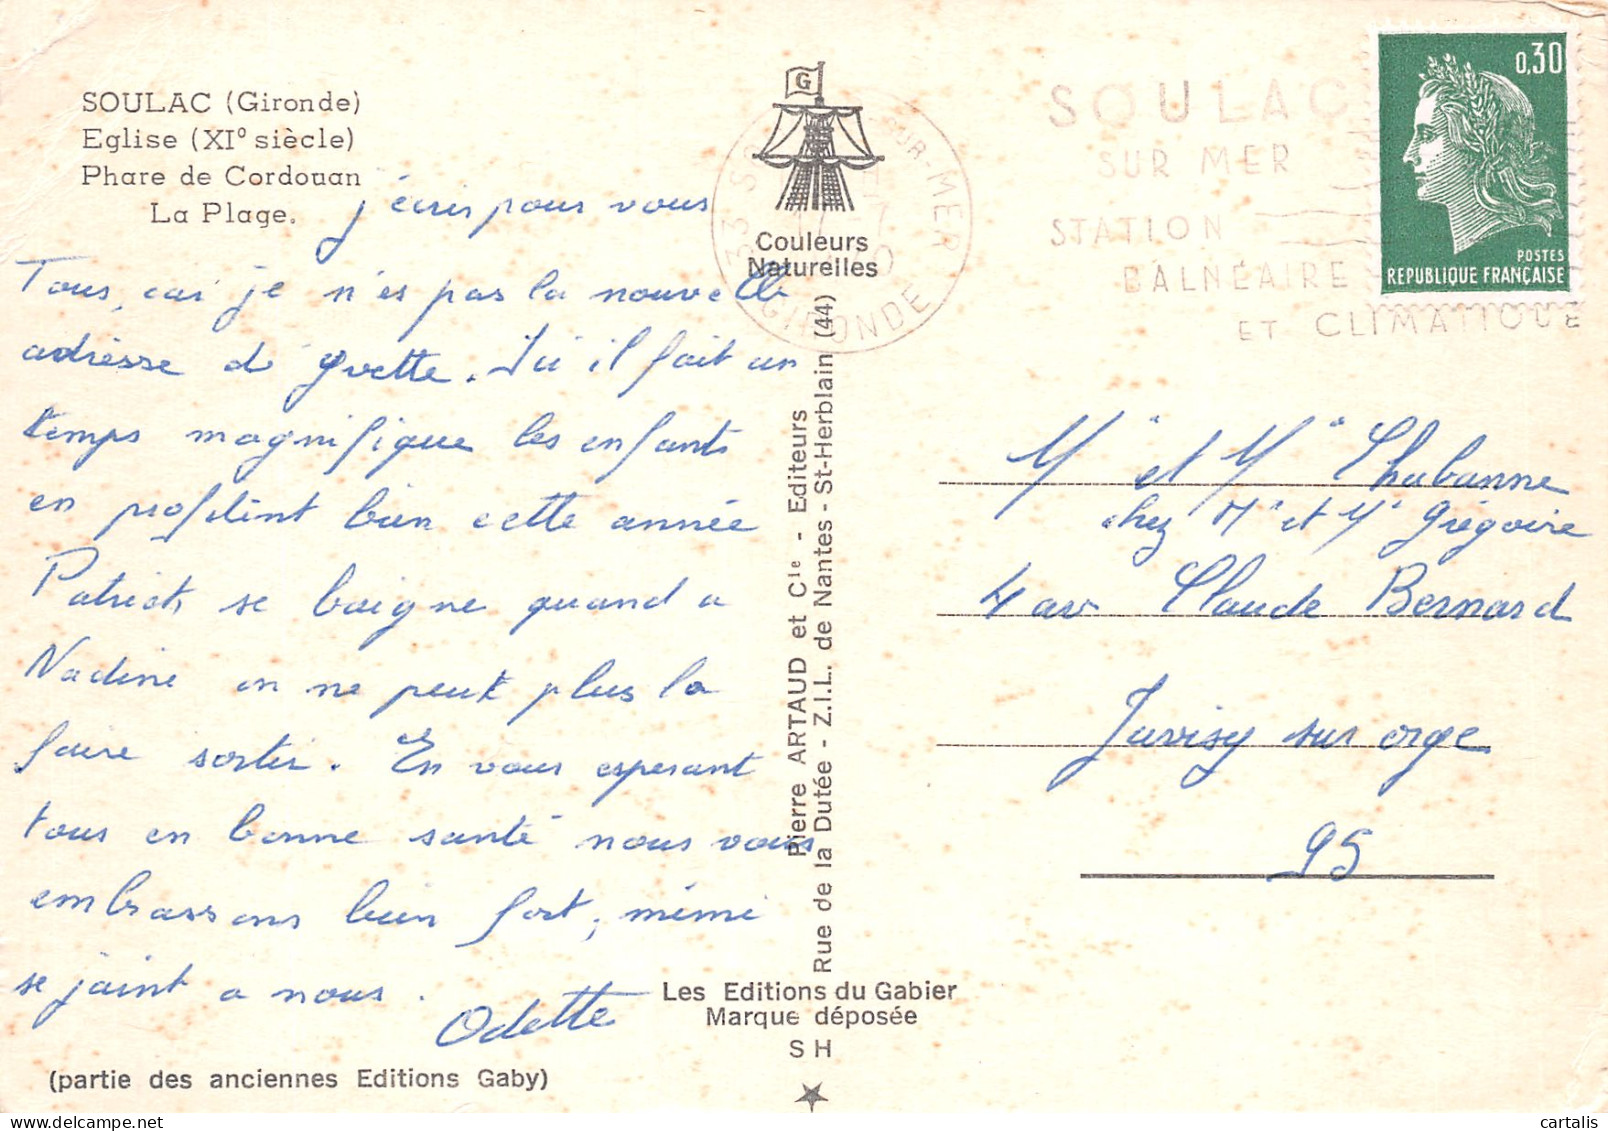 SOULAC (Gironde)
Eglise (XI° siècle)
Phare de Cordouan
La Plage.
j'écris pour vous
Tous, car je n'es pas la nouvelle
adresse d'Yvette. Ici il fait un
temps magnifique les enfants
en profitent bien cette année
Patrick se baigne quand a
Nadine on ne peut plus la
faire sortir. En vous esperant
tous en bonne santé nous vous
embrassons bien fort, mémé
se joint a nous.
Odette
(partie des anciennes Editions Gaby)
G
Couleurs
Naturelles
Pierre ARTAUD et Cie - Editeurs
Rue de la Dutée - Z.I.L. de Nantes - St-Herblain (44)
Les Editions du Gabier
Marque déposée
SH
33 SO SUR-MER
GIRONDE
SOULAC
SUR MER
STATION
BALNÉAIRE
ET CLIMATIQUE
0,30
POSTES
REPUBLIQUE FRANÇAISE
Mr et Me Chabanne
chez Mr et Me Grégoire
4 av Claude Bernard
Juvisy sur orge
95
cartalis